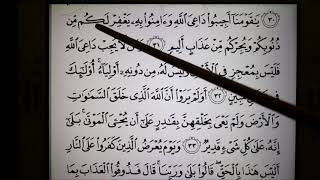 ٣٠ يَٰقَوْمَنَآ أَجِيبُوا۟ دَاعِىَ ٱللَّهِ وَءَامِنُوا۟ بِهِۦ يَغْفِرْ لَكُم مِّن
ذُنُوبِكُمْ وَيُجِرْكُم مِّنْ عَذَابٍ أَلِيمٍ ٣١ لَّا يُجِبْ دَاعِىَ ٱللَّهِ
فَلَيْسَ بِمُعْجِزٍ فِى وَلَيْسَ لَهُۥ مِن دُونِهِۦٓ أَوْلِيَآءُ أُو۟لَٰٓئِكَ
فِى مُّبِينٍ ٣٢ أَوَلَمْ يَرَوْا۟ أَنَّ ٱللَّهَ ٱلَّذِى خَلَقَ ٱلسَّمَٰوَٰتِ
وَٱلْأَرْضَ وَلَمْ يَعْىَ بِخَلْقِهِنَّ بِقَٰدِرٍ عَلَىٰٓ أَن يُحْـِۧىَ ٱلْمَوْتَىٰ بَلَىٰٓ
إِنَّهُۥ عَلَىٰ كُلِّ شَىْءٍ قَدِيرٌ ٣٣ وَيَوْمَ يُعْرَضُ ٱلَّذِينَ كَفَرُوا۟ عَلَى ٱلنَّارِ
أَلَيْسَ هَٰذَا بِٱلْحَقِّ قَالُوا۟ بَلَىٰ وَرَبِّنَا قَالَ فَذُوقُوا۟ ٱلْعَذَابَ بِمَا